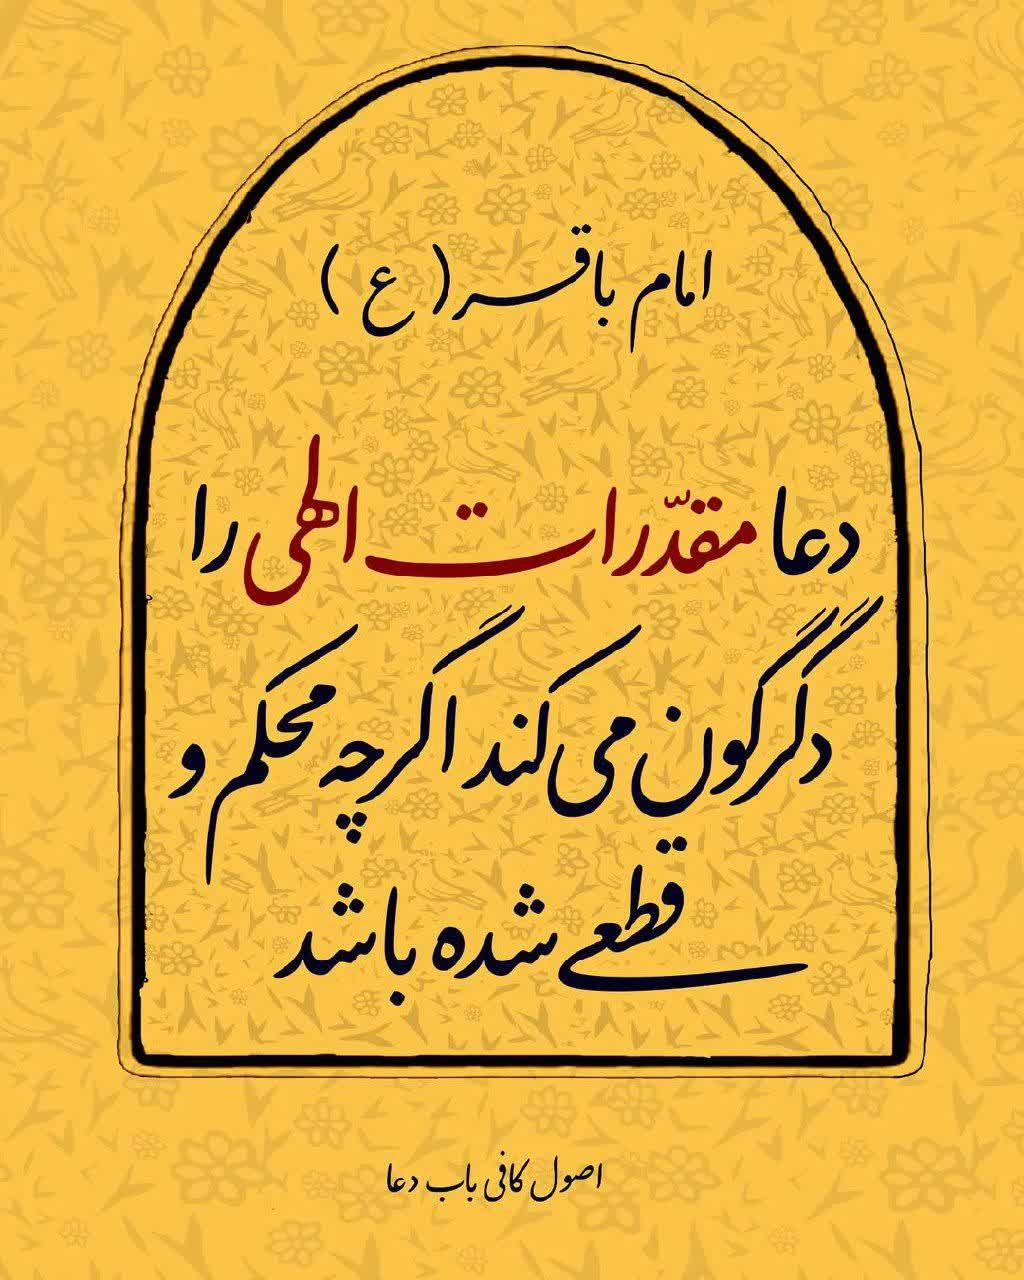 امام باقر (ع)
دعا مقدّرات الهی را
دگرگون می کند اگرچه محکم و
قطعی شده باشد
اصول کافی باب دعا